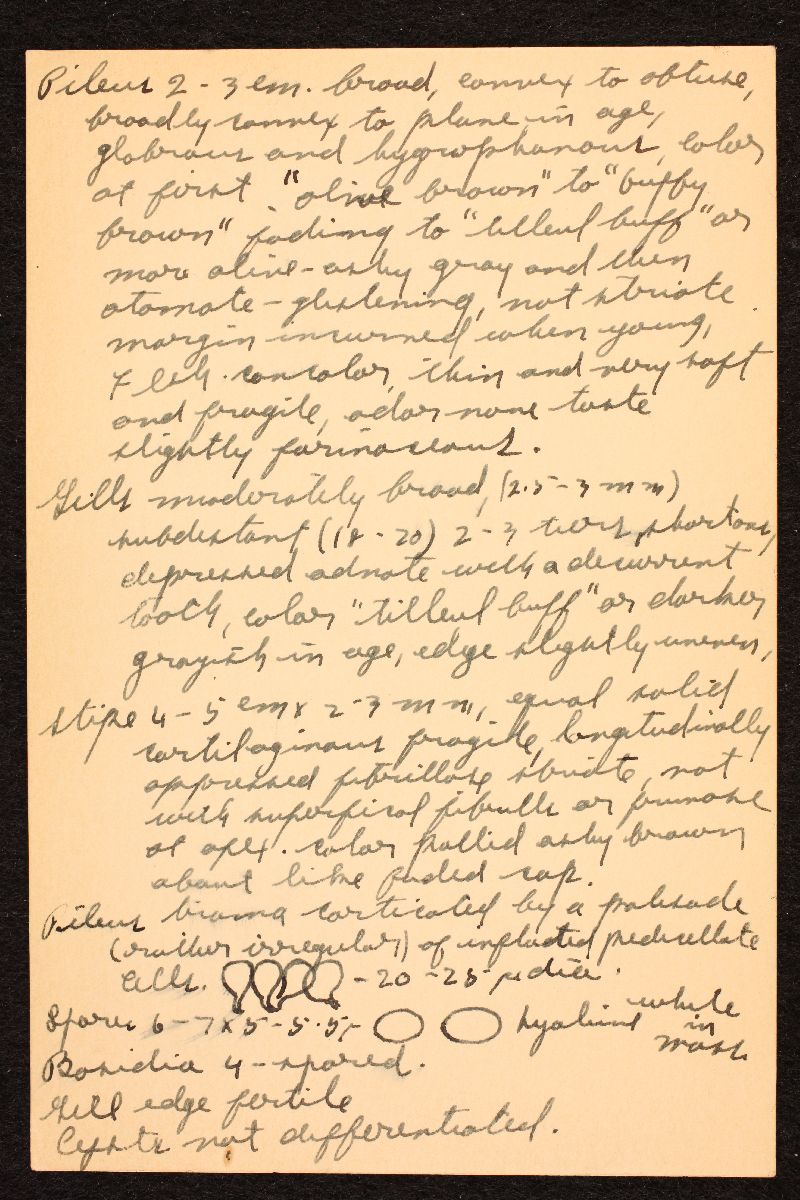 Pileus 2-3 cm. broad, convex to obtuse,
broadly convex to plane in age,
glabrous and hygrophanous, color
at first "olive brown" to "buffy
brown" fading to "tilleul buff" or
more olive-ashy gray and then
atomate-glistening, not striate
margin incurved when young,
Flesh concolor, thin and very soft
and fragile, odor none taste
slightly farinaceous.
Gills moderately broad, (2.5-3 mm)
subdistant (18-20) 2-3 tiers,
depressed adnate with a decurrent
tooth, color "tilleul buff" or darker
grayish in age, edge slightly uneven,
Stipe 4-5 cm x 2-3 mm, equal solid
cartilaginous fragile, longitudinally
appressed fibrillose striate, not
with superficial fibrills or pruinose
at apex. color pallid ashy brown
about like faded cap.
Pileus trama corticated by a palisade
(rather irregular) of inflated pedicellate
cells. -20-25 µ dia.
Spores 6-7 x 5-5.5µ hyaline white
in
mass
Basidia 4-spored.
Gill edge fertile
Cysts not differentiated.